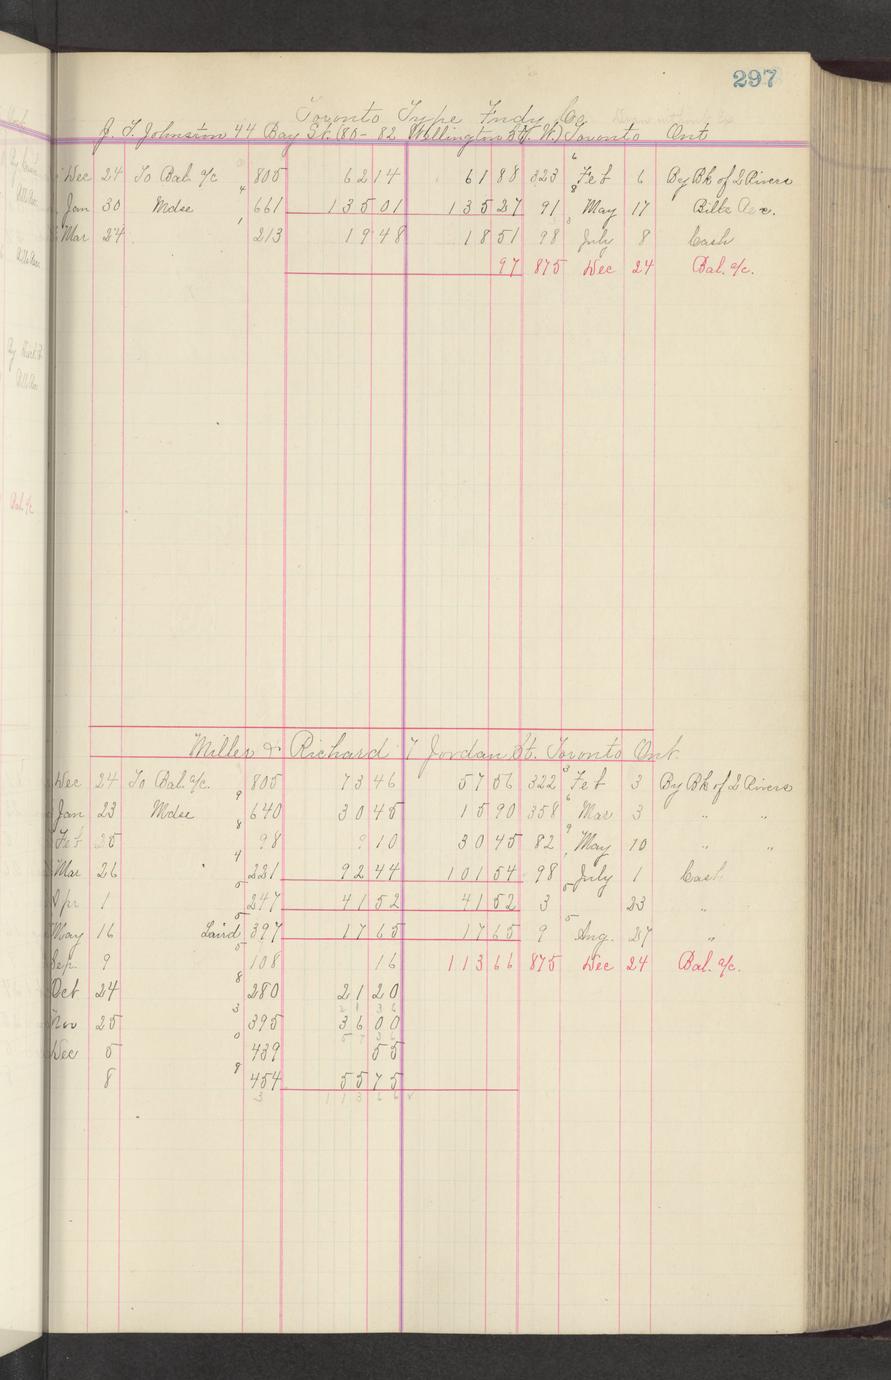 297
Toronto Type Fndy Co
J. T. Johnston 44 Bay St. (80-82 Wellington St. W.) Toronto Ont
Dec 24 To Bal a/c 805 62 14 61 88 323 6 Feb 6 By Bk of 2 Rivers
Jan 30 Mdse 4 661 135 01 135 27 91 8 May 17 Bills Rec.
Mar 24 1 213 19 48 18 51 98 3 July 8 Cash
97 875 Dec 24 Bal. a/c.
Miller & Richard 7 Jordan St. Toronto Ont.
Dec 24 To Bal a/c. 805 73 46 57 56 322 3 Feb 3 By Bk of 2 Rivers
Jan 23 Mdse 9 640 30 45 15 90 358 6 Mar 3 " "
Feb 25 8 98 9 10 30 45 82 9 May 10 " "
Mar 26 4 221 92 44 101 54 98 July 1 Cash
Apr 1 5 247 41 52 41 52 3 5 23 "
May 16 Laird 5 397 17 65 17 65 9 5 Aug. 27 "
Sep. 9 5 108 16 113 66 875 Dec 24 Bal. a/c.
Oct 24 8 280 21 20
21 36
Nov 25 3 395 36 00
57 36
Dec 5 0 439 55
8 8 454 55 75
3 113 66 ✓